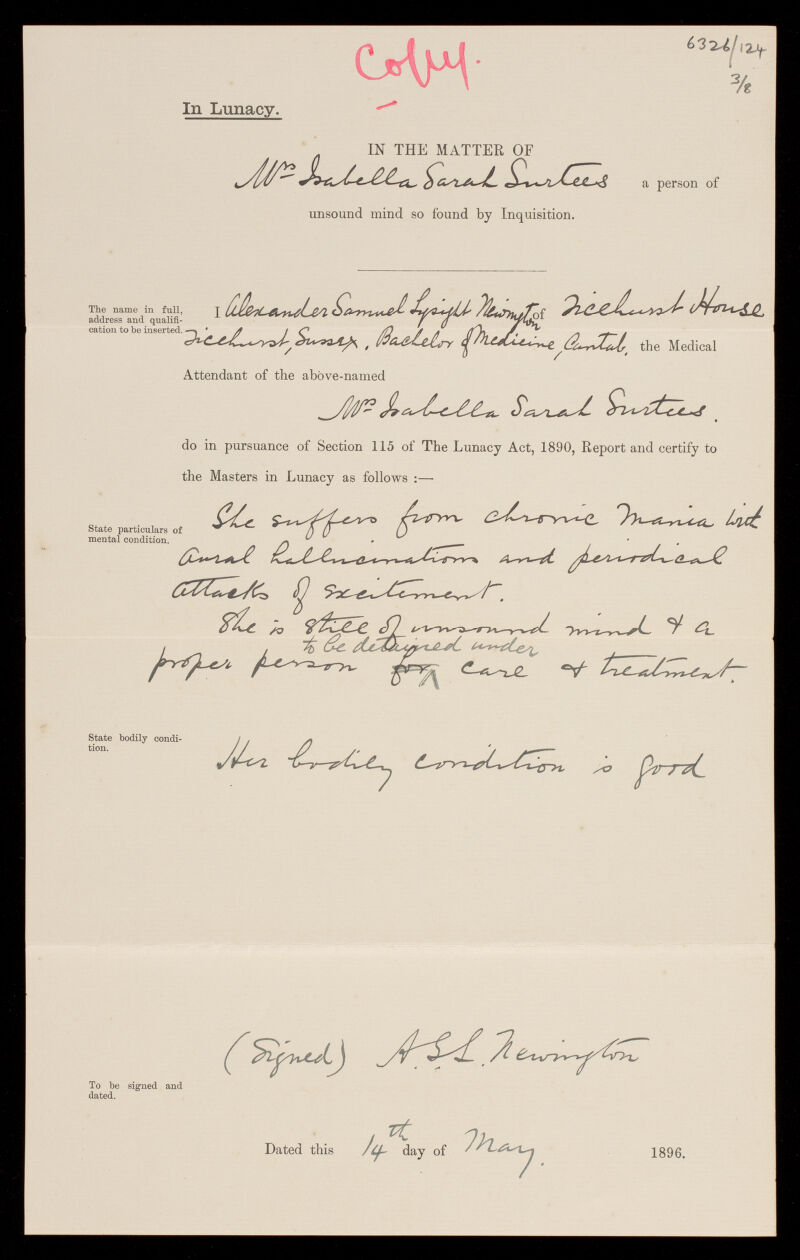 Copy.
6326/124
3/8
In Lunacy.
IN THE MATTER OF
Mrs Isabella Sarah Surtees a person of
unsound mind so found by Inquisition.
The name in full,
address and qualifi-
cation to be inserted.
I Alexander Samuel Lysight Newington of Ticehurst House
Ticehurst, Sussex, Bachelor of Medicine, Cantab, the Medical
Attendant of the above-named
Mrs Isabella Sarah Surtees.
do in pursuance of Section 115 of The Lunacy Act, 1890, Report and certify to
the Masters in Lunacy as follows :—
State particulars of
mental condition.
She suffers from chronic Mania with
Aural hallucinations and periodical
attacks of excitement.
She is still of unsound mind & a
to be detained under
proper person for care & treatment.
State bodily condi-
tion.
Her bodily condition is good
(Signed) A.S.L. Newington
To be signed and
dated.
Dated this 14th day of May. 1896.